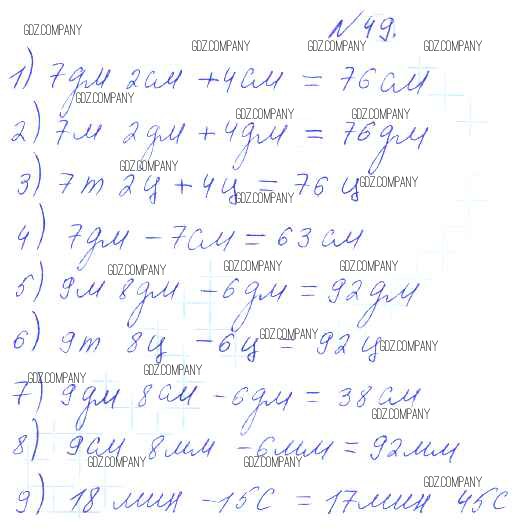 GDZ.COMPANY
№49.
GDZ.COMPANY GDZ.COMPANY GDZ.COMPANY
1) 7дм 2см + 4см = 76см
GDZ.COMPANY
GDZ.COMPANY GDZ.COMPANY
2) 7м 2дм + 4дм = 76дм
GDZ.COMPANY
3) 7т 2ц + 4ц = 76 ц GDZ.COMPANY
GDZ.COMPANY
4) 7дм - 7см = 63см
GDZ.COMPANY GDZ.COMPANY GDZ.COMPANY
5) 9м 8дм - 6дм = 92дм
GDZ.COMPANY
6) 9т 8ц - 6ц = 92 ц GDZ.COMPANY
GDZ.COMPANY GDZ.COMPANY
7) 9дм 8см - 6дм = 38см
GDZ.COMPANY
8) 9см 8мм - 6мм = 92мм
GDZ.COMPANY GDZ.COMPANY
GDZ.COMPANY
9) 18 мин - 15с = 17мин 45с
GDZ.COMPANY GDZ.COMPANY